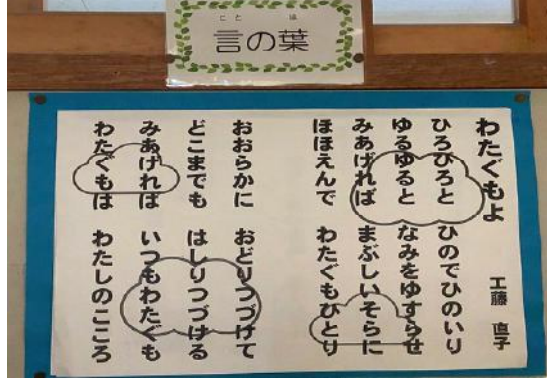 こと は
言の葉
わたぐもよ 工藤 直子
ひろびろと ひのでひのいり
ゆるゆると なみをゆすらせ
みあげれば まぶしいそらに
ほほえんで わたぐもひとり
おおらかに おどりつづけて
どこまでも はしりつづける
みあければ いつもわたぐも
わたぐもは わたしのこころ